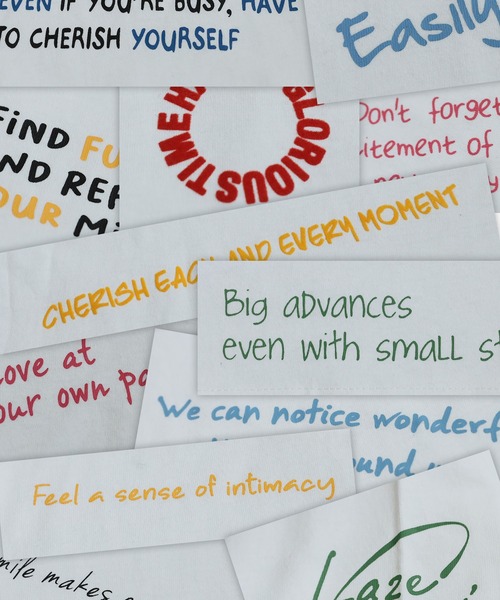 EVEN IF YOU'RE BUSY, HAVE
TO CHERISH YOURSELF
Easily
GLORIOUS TIME
Don't forget
itement of
FiND FU
ND REF
OUR Mi
CHERISH EACH AND EVERY MOMENT
Big advances
even with small st
Love at
our own pa
We can notice wonderf
ound
Feel a sense of intimacy
mile makes